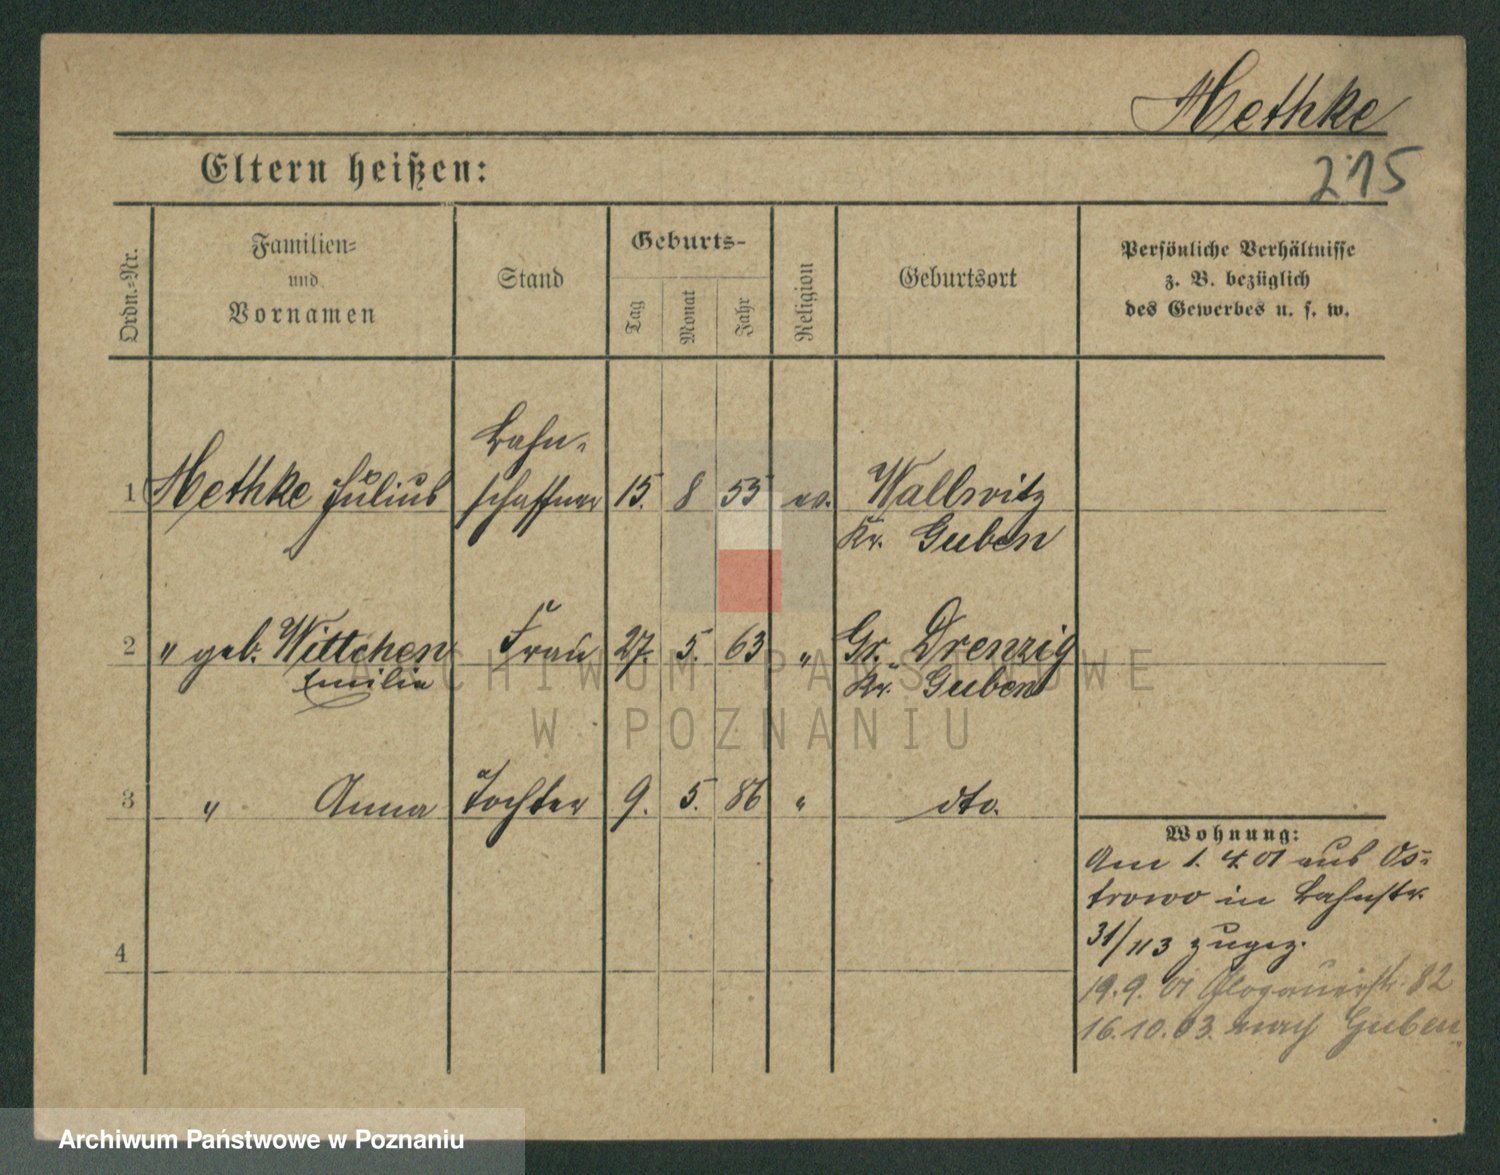 Methke
215
Eltern heißen:
Ordn.-Nr.
Familien-
und
Vornamen
Stand
Geburts-
Tag
Monat
Jahr
Religion
Geburtsort
Persönliche Verhältnisse
z. B. bezüglich
des Gewerbes u. s. w.
Bahn-
1 Methke Julius schaffner 15. 8 55 ev. Wallwitz
Kr. Guben
2 " geb. Wittchen Frau 27. 5. 63 " Gr. Drenzig
Emilia Kr. Guben
3 " Anna Tochter 9. 5. 86 " dto.
4
Wohnung:
Am 1. 4. 01 aus Os-
trowo in Bahnstr.
31/113 zugez.
19. 9. 01 Glogauerstr. 82
16. 10. 03. nach Guben
ARCHIWUM PAŃSTWOWE
W POZNANIU
Archiwum Państwowe w Poznaniu